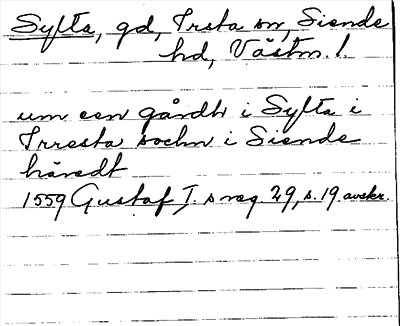 Syfta, gd, Irsta sn, Siende
hd, Västm. l.
um een gårdh i Syfta i
Irresta sochn i Siende
häredt
1559 Gustaf I.s reg. 29, s. 19 avskr.